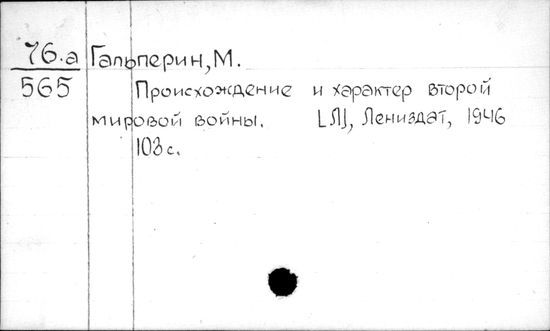 76.а Гальперин, М.
565 Происхождение и характер второй
мировой войны. [Л], Лениздат, 1946
103 с.